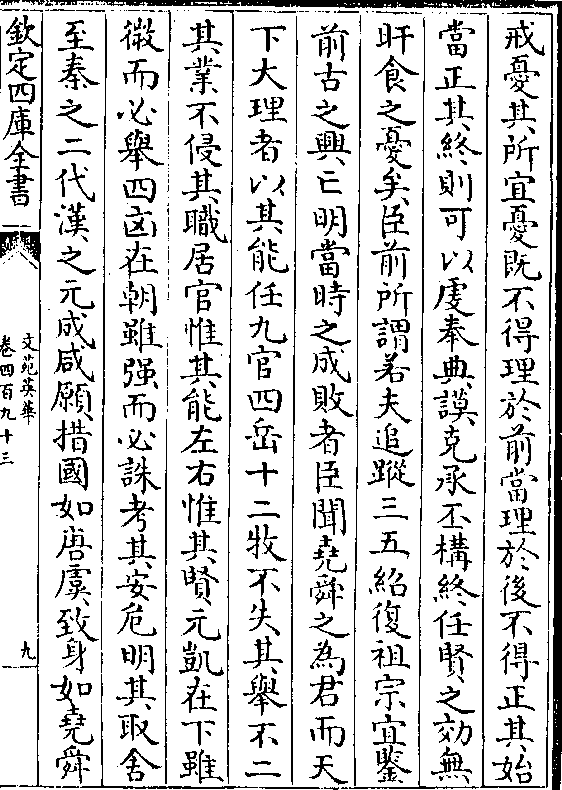 戒憂其所宜憂既不得理於前當理於後不得正其始
當正其終則可以虔奉典謨克承丕構終任賢之効無
旰食之憂矣臣前所謂若夫追蹤三五紹復祖宗宜鑒
前古之興亡明當時之成敗者臣聞堯舜之為君而天
下大理者以其能任九官四岳十二牧不失其舉不二
其業不侵其職居官惟其能左右惟其賢元凱在下雖
微而必舉四凶在朝雖强而必誅考其安危明其取舍
至秦之二代漢之元成咸願措國如唐虞致身如堯舜
欽定四庫全書
文苑英華
卷四百九十三
九